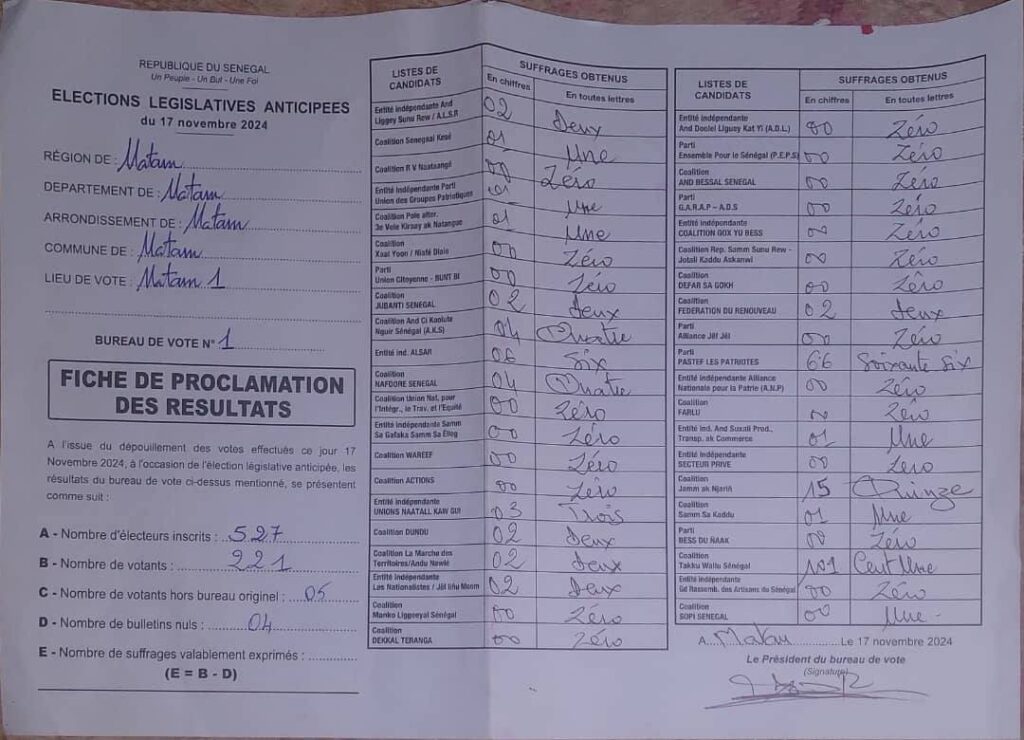 REPUBLIQUE DU SENEGAL
Un Peuple - Un But - Une Foi
ELECTIONS LEGISLATIVES ANTICIPEES
du 17 novembre 2024
RÉGION DE : Matam
DEPARTEMENT DE : Matam
ARRONDISSEMENT DE : Matam
COMMUNE DE : Matam
LIEU DE VOTE : Matam 1
BUREAU DE VOTE N° 1
FICHE DE PROCLAMATION
DES RESULTATS
A l'issue du dépouillement des votes effectués ce jour 17
Novembre 2024, à l'occasion de l'élection législative anticipée, les
résultats du bureau de vote ci-dessus mentionné, se présentent
comme suit :
A - Nombre d'électeurs inscrits : 527
B - Nombre de votants : 221
C - Nombre de votants hors bureau originel : 05
D - Nombre de bulletins nuls : 04
E - Nombre de suffrages valablement exprimés :
(E = B - D)
LISTES DE
CANDIDATS
SUFFRAGES OBTENUS
En chiffres
En toutes lettres
Entité indépendante And
Liggey Sunu Rew / A.L.S.R
02 Deux
Coalition Senegaal Kesé
01 Une
Coalition R V Naataangé
00 Zéro
Entité indépendante Parti
Union des Groupes Patriotiques
01 Une
Coalition Pole alter.
3e Voie Kiraay ak Natangue
01 Une
Coalition
Xaal Yoon / Niaté Diale
00 Zéro
Parti
Union Citoyenne - BUNT BI
00 Zéro
Coalition
JUBANTI SENEGAL
02 Deux
Coalition And Ci Koolute
Nguir Sénégal (A.K.S)
04 Quatre
Entité ind. ALSAR
06 Six
Coalition
NAFOORE SENEGAL
04 Quatre
Coalition Union Nat. pour
l'Intégr., le Trav. et l'Equité
00 Zéro
Entité Indépendante Samm
Sa Gafaka Samm Sa Ëllëg
00 Zéro
Coalition WAREEF
00 Zéro
Coalition ACTIONS
00 Zéro
Entité indépendante
UNIONS NAATALL KAW GUI
03 Trois
Coalition DUNDU
02 Deux
Coalition La Marche des
Territoires/Andu Nawlé
02 Deux
Entité indépendante
Les Nationalistes / Jël liñu Moom
02 Deux
Coalition
Manko Liggeeyal Sénégal
00 Zéro
Coalition
DEKKAL TERANGA
00 Zéro
LISTES DE
CANDIDATS
SUFFRAGES OBTENUS
En chiffres
En toutes lettres
Entité indépendante
And Doolel Liguey Kat Yi (A.D.L)
00 Zéro
Parti
Ensemble Pour le Sénégal (P.E.P.S)
00 Zéro
Coalition
AND BESSAL SENEGAL
00 Zéro
Parti
G.A.R.A.P - A.D.S
00 Zéro
Entité indépendante
COALITION GOX YU BESS
00 Zéro
Coalition Rep. Samm Sunu Rew -
Jotali Kaddu Askanwi
00 Zéro
Coalition
DEFAR SA GOKH
00 Zéro
Coalition
FEDERATION DU RENOUVEAU
02 Deux
Parti
Alliance Jëf Jël
00 Zéro
Parti
PASTEF LES PATRIOTES
66 Soixante Six
Entité Indépendante Alliance
Nationale pour la Patrie (A.N.P)
00 Zéro
Coalition
FARLU
00 Zéro
Entité Ind. And Suxali Prod.,
Transp. ak Commerce
01 Une
Entité Indépendante
SECTEUR PRIVE
00 Zéro
Coalition
Jamm ak Njariñ
15 Quinze
Coalition
Samm Sa Kaddu
01 Une
Parti
BESS DU ÑAAK
00 Zéro
Coalition
Takku Wallu Sénégal
101 Cent Une
Entité indépendante
Gd Rassemb. des Artisans du Sénégal
00 Zéro
Coalition
SOPI SENEGAL
00 Une -
A Matam Le 17 novembre 2024
Le Président du bureau de vote
(Signature)